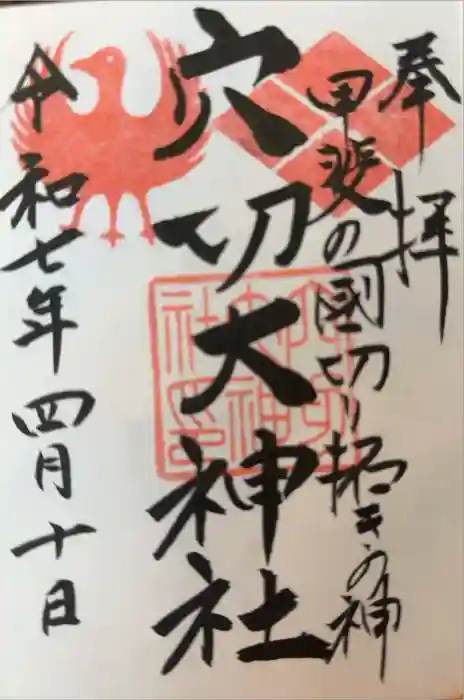 奉拝
甲斐の國切り拓きの神
穴切大神社
令和七年四月十日